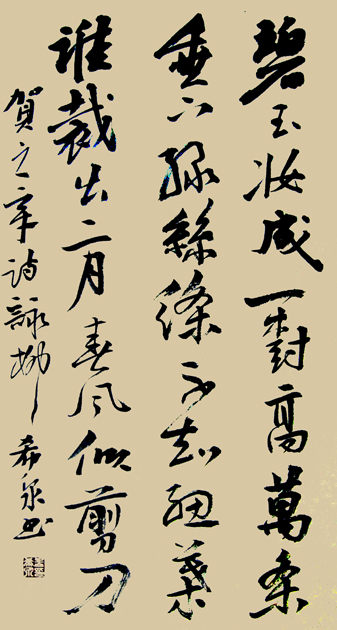 碧玉妆成一樹高萬条
垂下綠絲絛不知細葉
誰裁出二月春风似剪刀
賀之章詩詠柳 希泉书